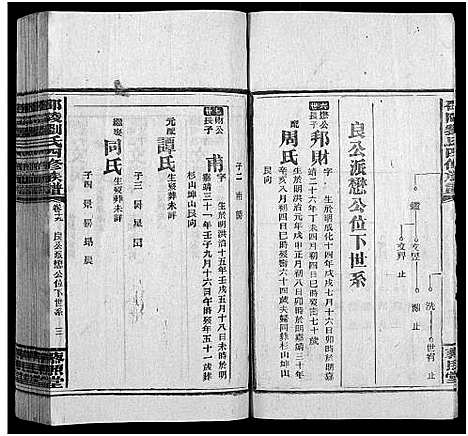 鑑
洗
文昇 止
世宥 止
良公派懋公位下世系
六世
懋公
長子
邦財
字 生於明成化十四年戊戌七月十六日卯時歿於明嘉
靖二十六年丁未四月初四日巳時歿壽七十歲
配
周氏
生於明洪治元年戊申正月初八日卯時歿於明嘉靖三十年
辛亥八月初四日巳時歿壽六十四歲夫婦同葬杉山坤山
艮向
子二 甫 勝
七世
財公
長子
甫
字 生於明洪治十五年壬戌五月十八日未時歿於明
嘉靖三十一年壬子九月十六日午時歿年五十一歲葬
杉山坤山艮向
元配
譚氏
生歿葬未詳
繼娶
同氏
生歿葬未詳
子四 景 勗 昂 晟
邵陵劉氏四修族譜
卷之九
良公派懋公位下世系
三